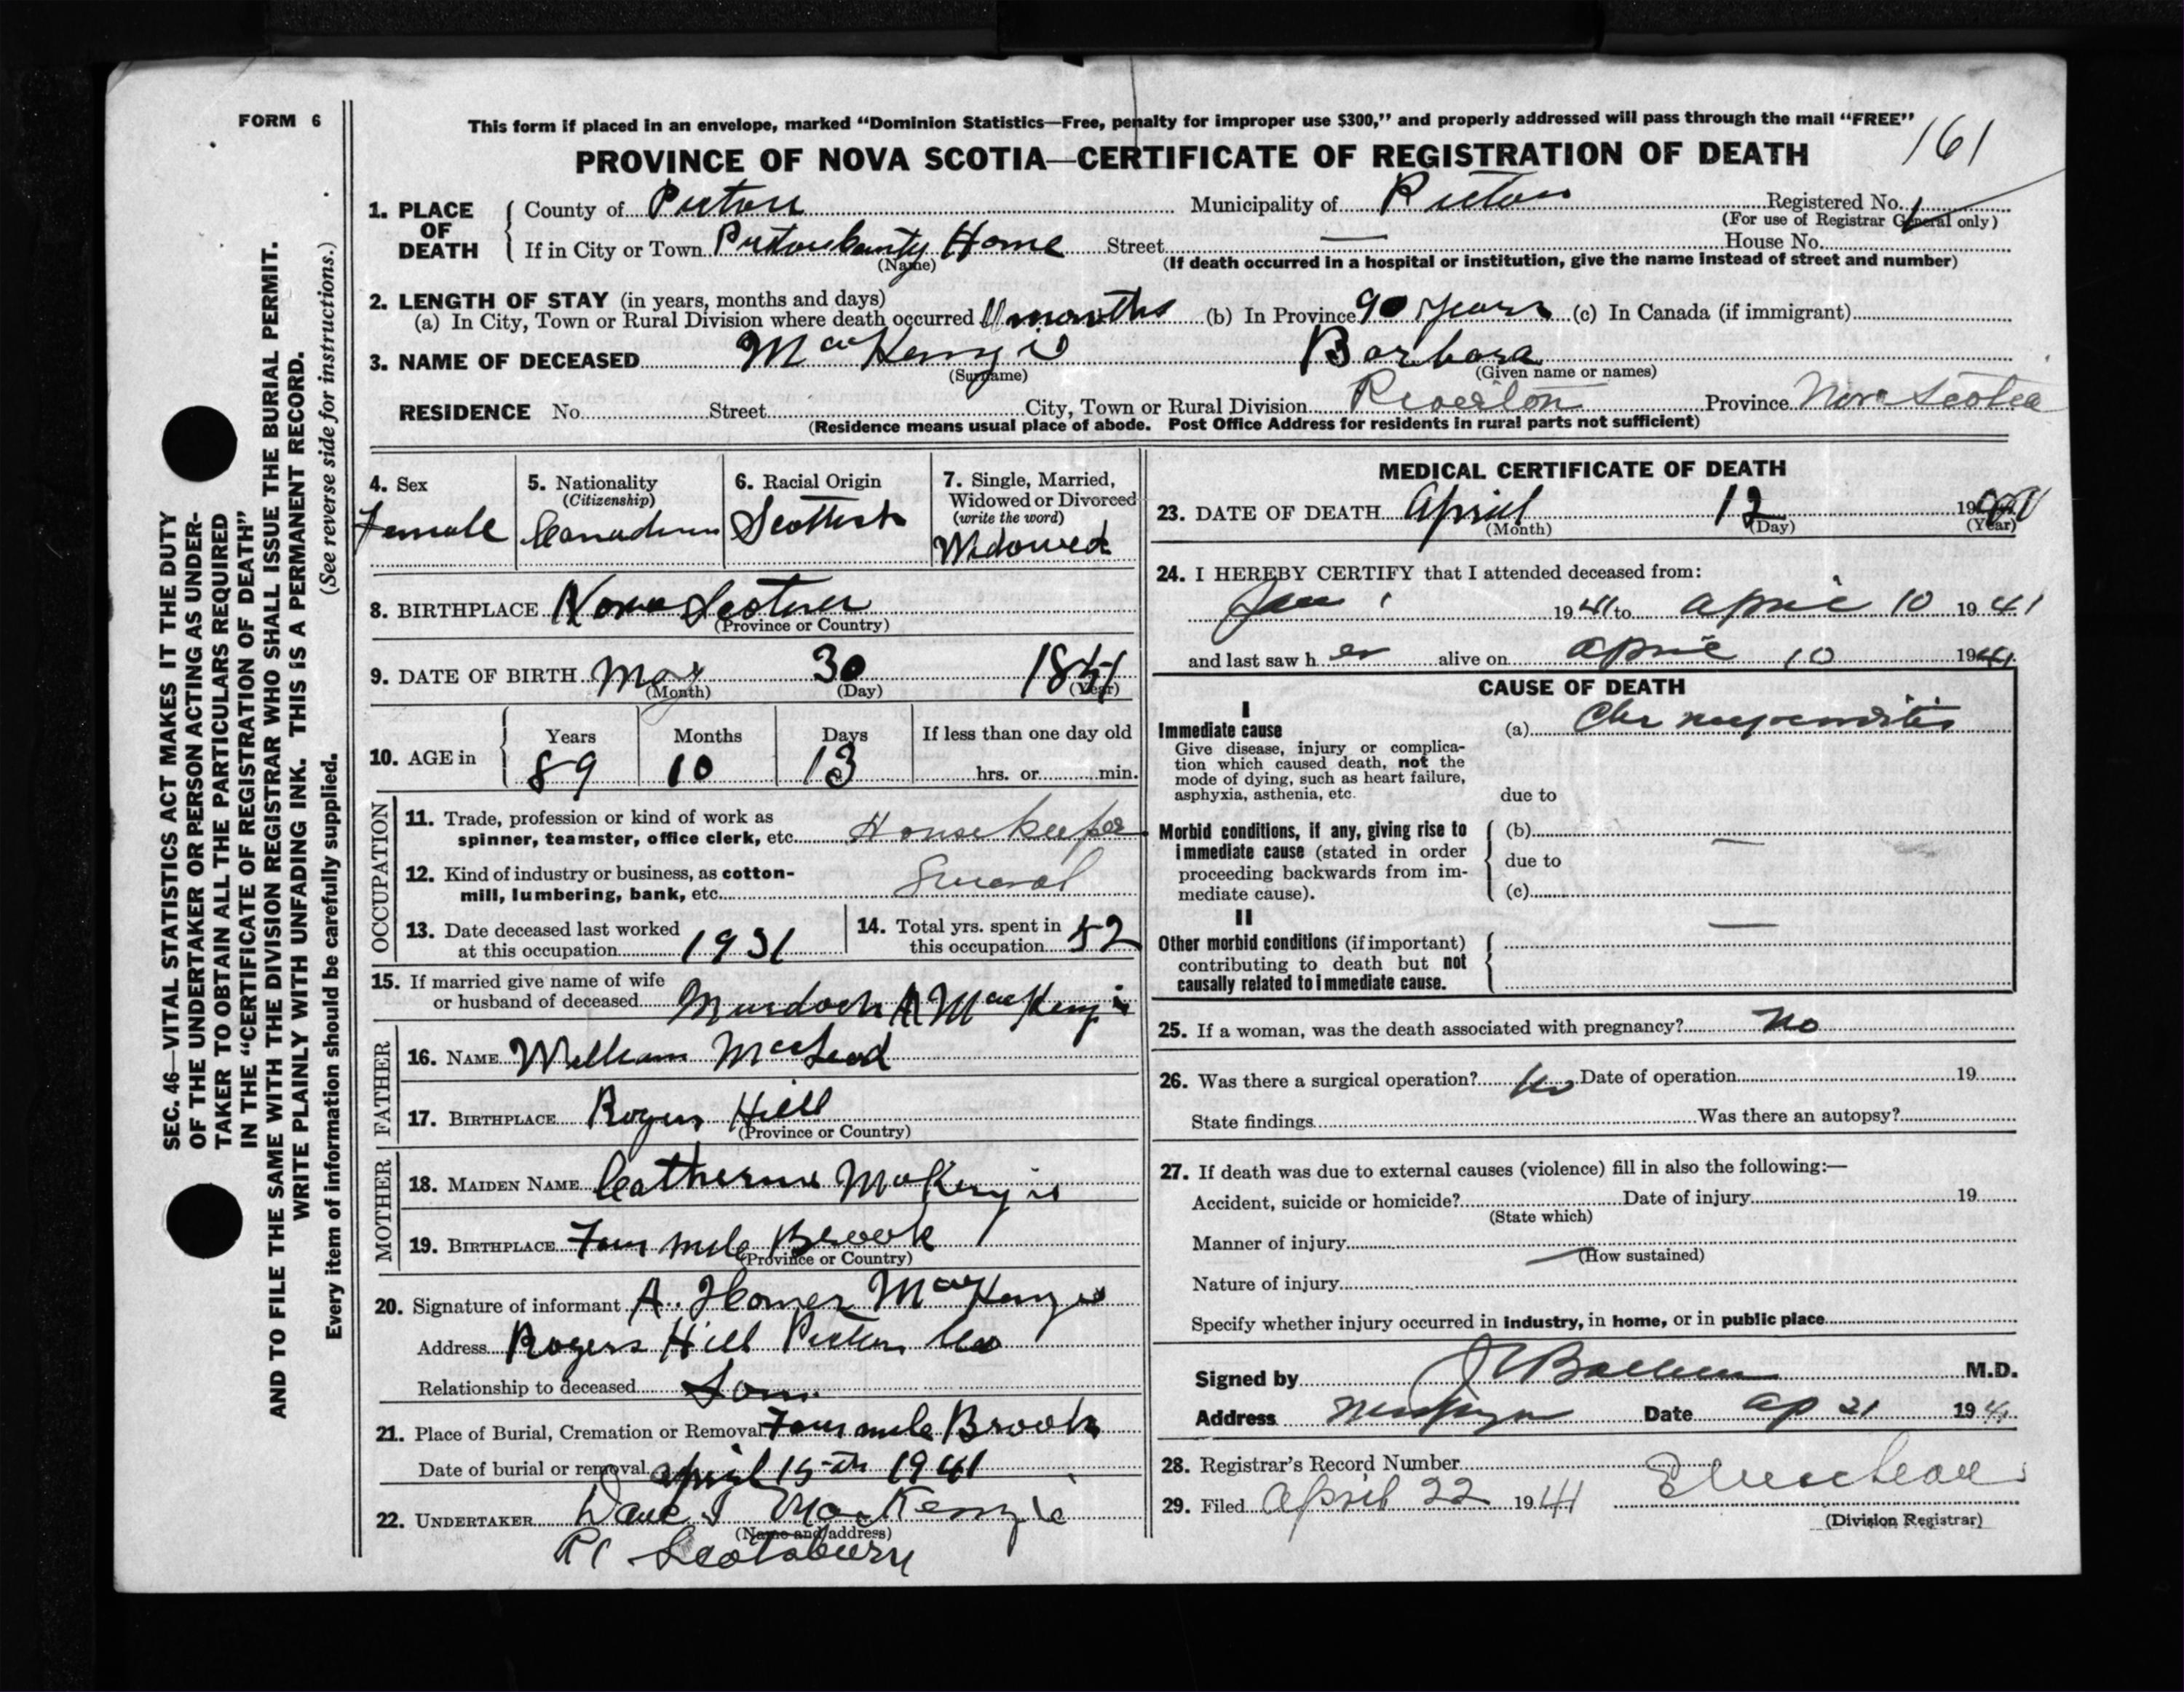 FORM 6
This form if placed in an envelope, marked “Dominion Statistics—Free, penalty for improper use $300,” and properly addressed will pass through the mail “FREE”
161
PROVINCE OF NOVA SCOTIA—CERTIFICATE OF REGISTRATION OF DEATH
1. PLACE OF DEATH
County of Pictou Municipality of Pictou Registered No.
(For use of Registrar General only)
If in City or Town Pictou County Home Street — House No.
(Name)
(If death occurred in a hospital or institution, give the name instead of street and number)
2. LENGTH OF STAY (in years, months and days)
(a) In City, Town or Rural Division where death occurred 11 months (b) In Province 90 years (c) In Canada (if immigrant)
3. NAME OF DECEASED MacKenzie Barbara
(Surname) (Given name or names)
RESIDENCE No. Street City, Town or Rural Division Riverton Province Nova Scotia
(Residence means usual place of abode. Post Office Address for residents in rural parts not sufficient)
4. Sex
Female
5. Nationality
(Citizenship)
Canadian
6. Racial Origin
Scottish
7. Single, Married,
Widowed or Divorced
(write the word)
Widowed
8. BIRTHPLACE Nova Scotia
(Province or Country)
9. DATE OF BIRTH May 30 1851
(Month) (Day) (Year)
10. AGE in
Years Months Days If less than one day old
89 10 13 hrs. or min.
OCCUPATION
11. Trade, profession or kind of work as
spinner, teamster, office clerk, etc. House keeper
12. Kind of industry or business, as cotton-
mill, lumbering, bank, etc. General
13. Date deceased last worked
at this occupation 1931
14. Total yrs. spent in
this occupation 52
15. If married give name of wife
or husband of deceased Murdoch A MacKenzie
FATHER
16. NAME William McLeod
17. BIRTHPLACE Rogers Hill
(Province or Country)
MOTHER
18. MAIDEN NAME Catherine McKenzie
19. BIRTHPLACE Four mile Brook
(Province or Country)
20. Signature of informant A. Homer MacKenzie
Address Rogers Hill Pictou Co
Relationship to deceased Son.
21. Place of Burial, Cremation or Removal Four mile Brook
Date of burial or removal april 15th 1941
22. UNDERTAKER MacKenzie
(Name and address)
Scotsburn
MEDICAL CERTIFICATE OF DEATH
23. DATE OF DEATH April 12 1941
(Month) (Day) (Year)
24. I HEREBY CERTIFY that I attended deceased from:
Jan 1941 to April 10 1941
and last saw h er alive on April 10 1941
CAUSE OF DEATH
I
Immediate cause
Give disease, injury or complica-
tion which caused death, not the
mode of dying, such as heart failure,
asphyxia, asthenia, etc.
(a) Chr myocarditis
due to
Morbid conditions, if any, giving rise to
immediate cause (stated in order
proceeding backwards from im-
mediate cause).
(b) —
due to
(c)
II
Other morbid conditions (if important)
contributing to death but not
causally related to immediate cause.
—
25. If a woman, was the death associated with pregnancy? No
26. Was there a surgical operation? No Date of operation 19
State findings Was there an autopsy?
27. If death was due to external causes (violence) fill in also the following:—
Accident, suicide or homicide? Date of injury 19
(State which)
Manner of injury
(How sustained)
Nature of injury
Specify whether injury occurred in industry, in home, or in public place
Signed by M.D.
Address Date Ap 21 1941
28. Registrar's Record Number
29. Filed April 22 1941
(Division Registrar)
SEC. 46—VITAL STATISTICS ACT MAKES IT THE DUTY
OF THE UNDERTAKER OR PERSON ACTING AS UNDER-
TAKER TO OBTAIN ALL THE PARTICULARS REQUIRED
IN THE “CERTIFICATE OF REGISTRATION OF DEATH”
AND TO FILE THE SAME WITH THE DIVISION REGISTRAR WHO SHALL ISSUE THE BURIAL PERMIT.
WRITE PLAINLY WITH UNFADING INK. THIS IS A PERMANENT RECORD.
Every item of information should be carefully supplied. (See reverse side for instructions.)